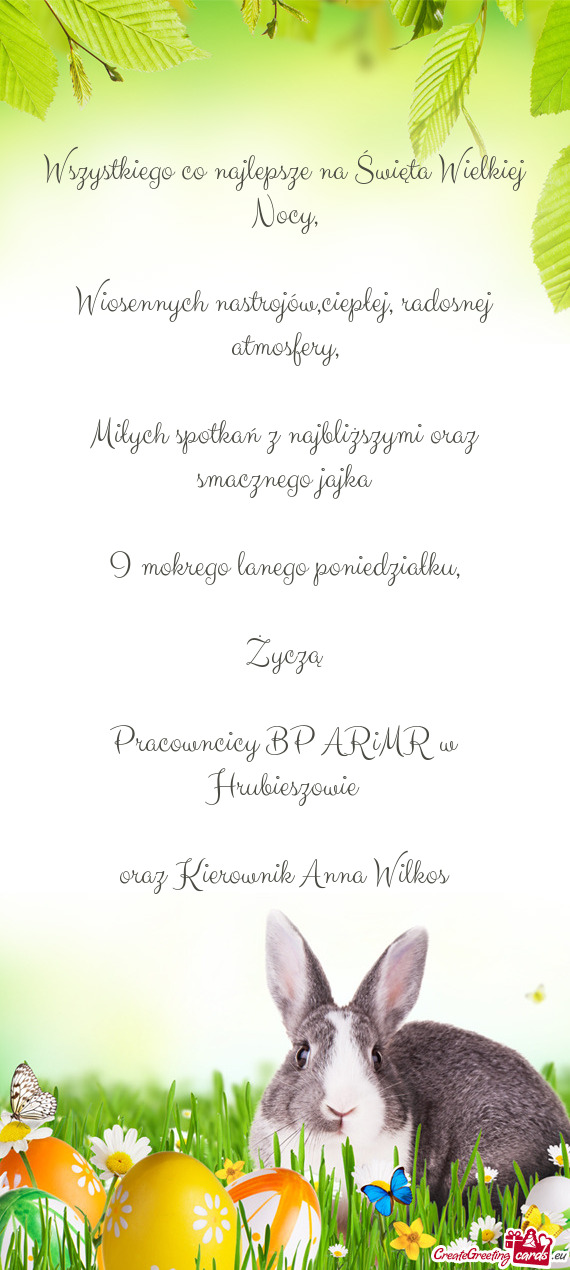 Wszystkiego co najlepsze na Święta Wielkiej
Nocy,
Wiosennych nastrojów,ciepłej, radosnej
atmosfery,
Miłych spotkań z najbliższymi oraz
smacznego jajka
I mokrego lanego poniedziałku,
Życzą
Pracowncicy BP ARiMR w
Hrubieszowie
oraz Kierownik Anna Wilkos
CreateGreeting cards .eu